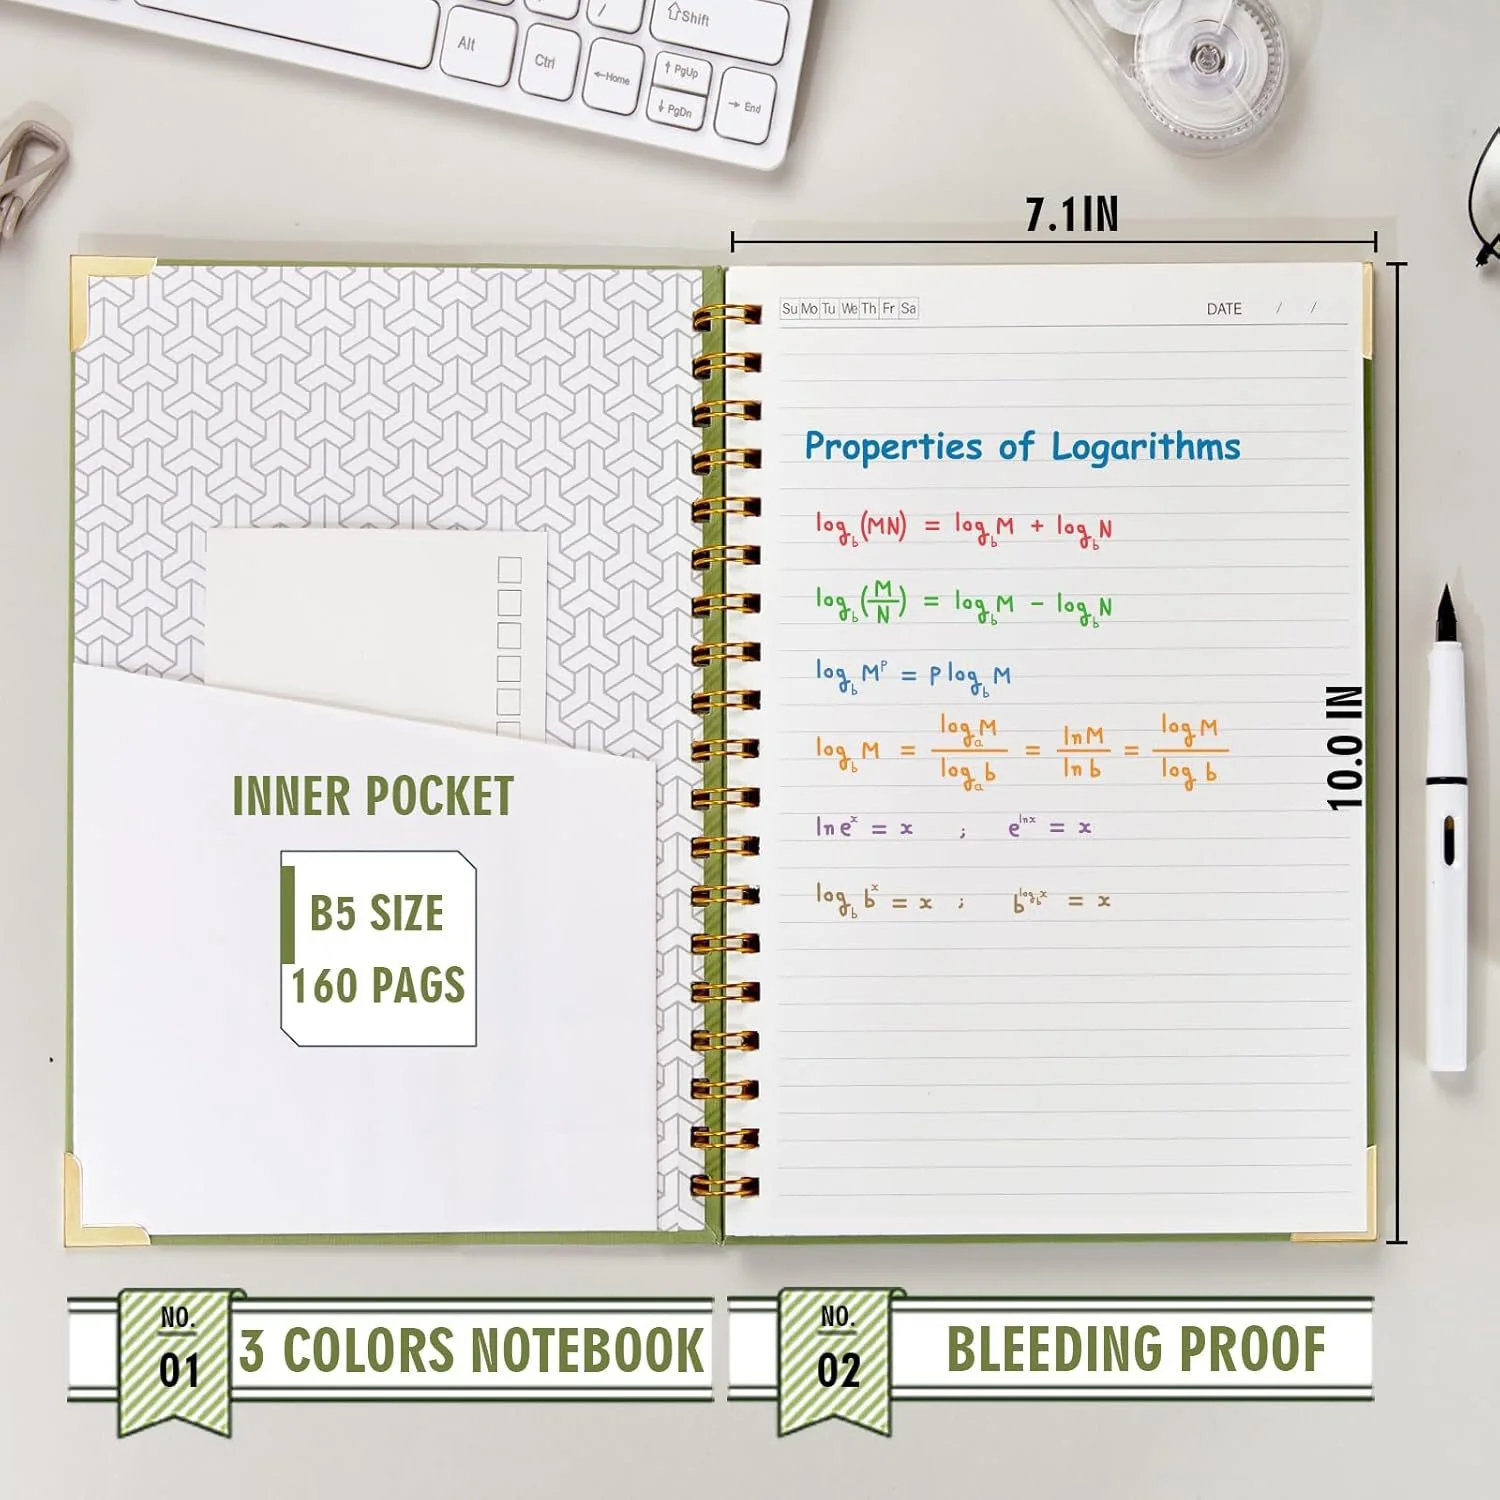 Alt
Ctrl
/
⇧Shift
←Home
↑ PgUp
↓ PgDn
→ End
7.1IN
Su Mo Tu We Th Fr Sa
DATE / /
Properties of Logarithms
log_b(MN) = log_b M + log_b N
log_b(M/N) = log_b M - log_b N
log_b M^P = P log_b M
log_b M = log_a M / log_a b = ln M / ln b = log M / log b
ln e^x = x ; e^{ln x} = x
log_b b^x = x ; b^{log_b x} = x
10.0 IN
INNER POCKET
B5 SIZE
160 PAGS
NO.
01
3 COLORS NOTEBOOK
NO.
02
BLEEDING PROOF